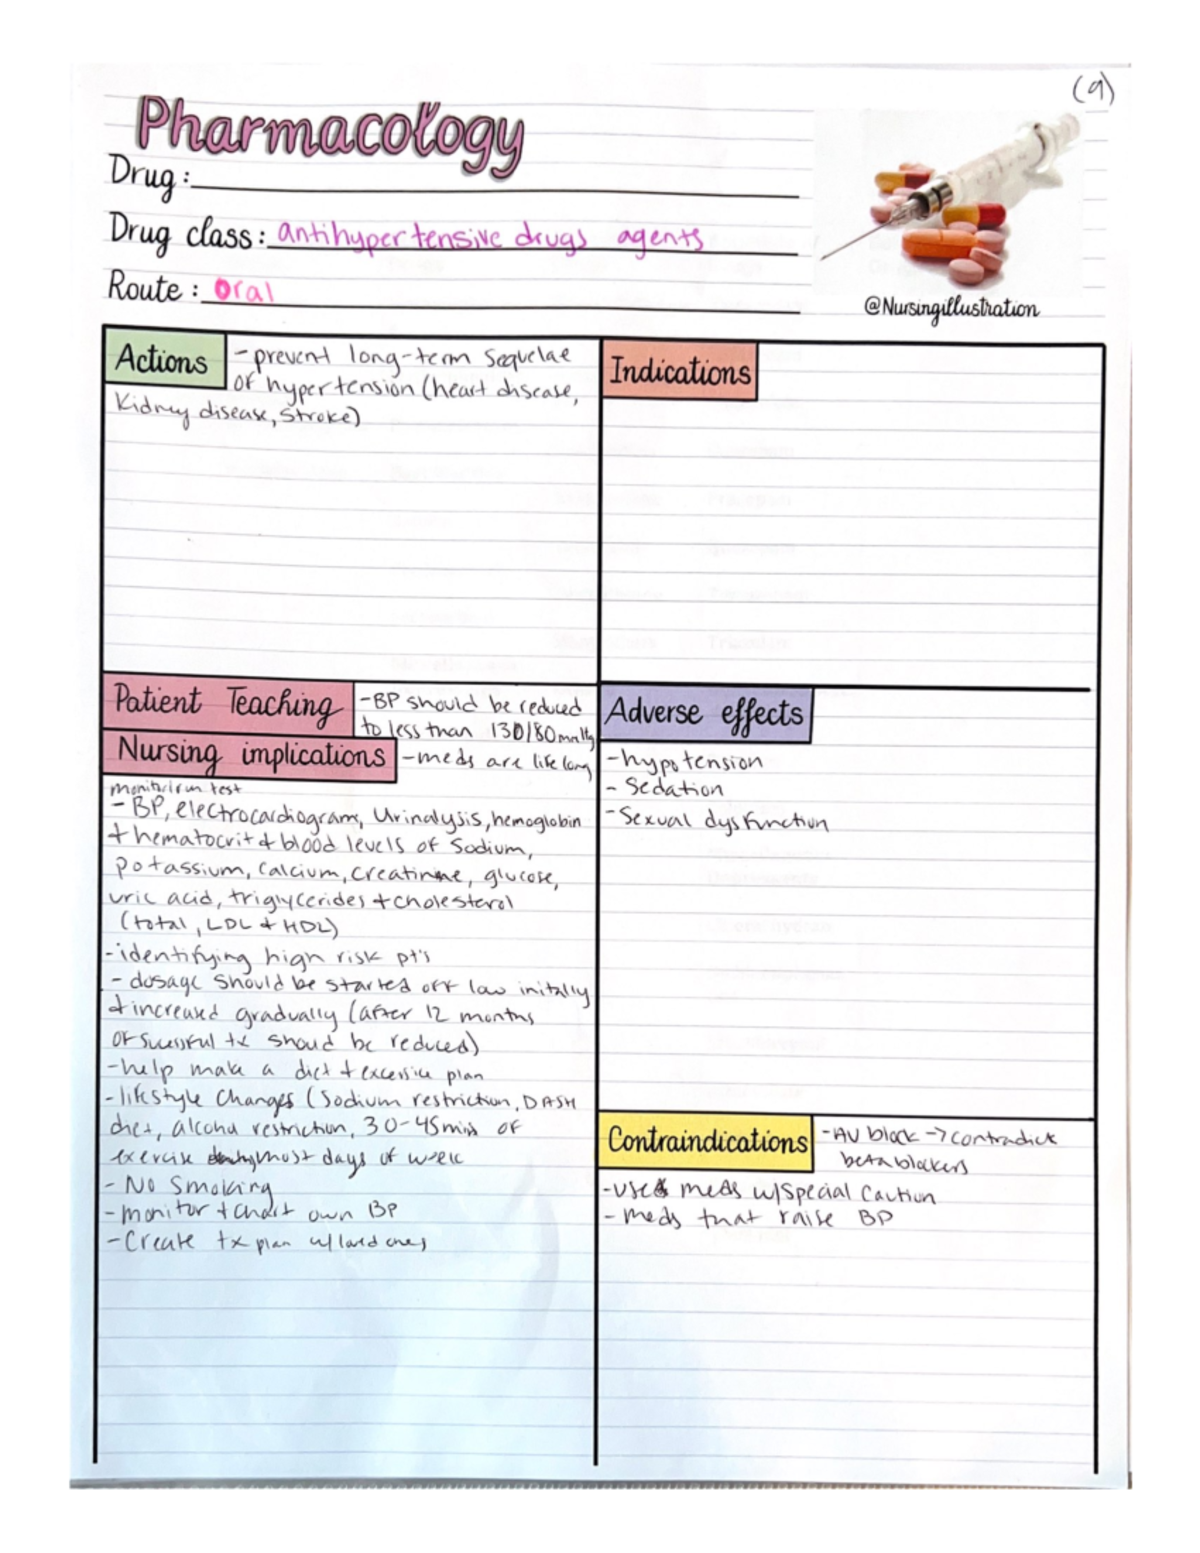 (9)
Pharmacology
Drug:
Drug class: antihypertensive drugs agents
Route: oral
@Nursingillustration
Actions
-prevent long-term sequelae
of hypertension (heart disease,
Kidney disease, stroke)
Indications
Patient Teaching
-BP should be reduced
to less than 130/80mmHg
Nursing implications
-meds are life long
monitor/run test
-BP, electrocardiogram, Urinalysis, hemoglobin
+ hematocrit + blood levels of Sodium,
potassium, Calcium, Creatinine, glucose,
uric acid, triglycerides + cholesterol
(total, LDL + HDL)
-identifying high risk pt's
-dosage should be started off low initally
+ increased gradually (after 12 months
of sucessful tx should be reduced)
-help make a diet + excersice plan
-lifestyle changes (Sodium restriction, DASH
diet, alcohol restriction, 30-45mins of
exercise most days of week
- No Smoking
-monitor + Chart own BP
-Create tx plan w/loved ones
Adverse effects
-hypotension
- Sedation
-Sexual dysfunction
Contraindications
-AV block -> contradict
betablockers
-use meds w/special Caution
-meds that raise BP